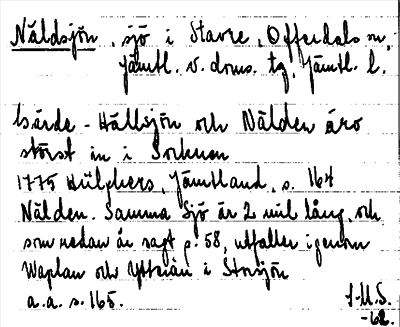 Näldsjön, sjö i Stavre, Offerdals sn,
Jämtl. v. doms. tg, Jämtl. l.
Gärde-Hällsjön och Nälden äro
störst in i Socknen
1775 Hülphers, Jämtland, s. 164
Nälden. Samma Sjö är 2 mil lång, och
som nedan är sagt p. 58, utfaller igenom
Waplan och Ytterån i Storsjön
a.a. s. 165.
J.M.S.
-62.